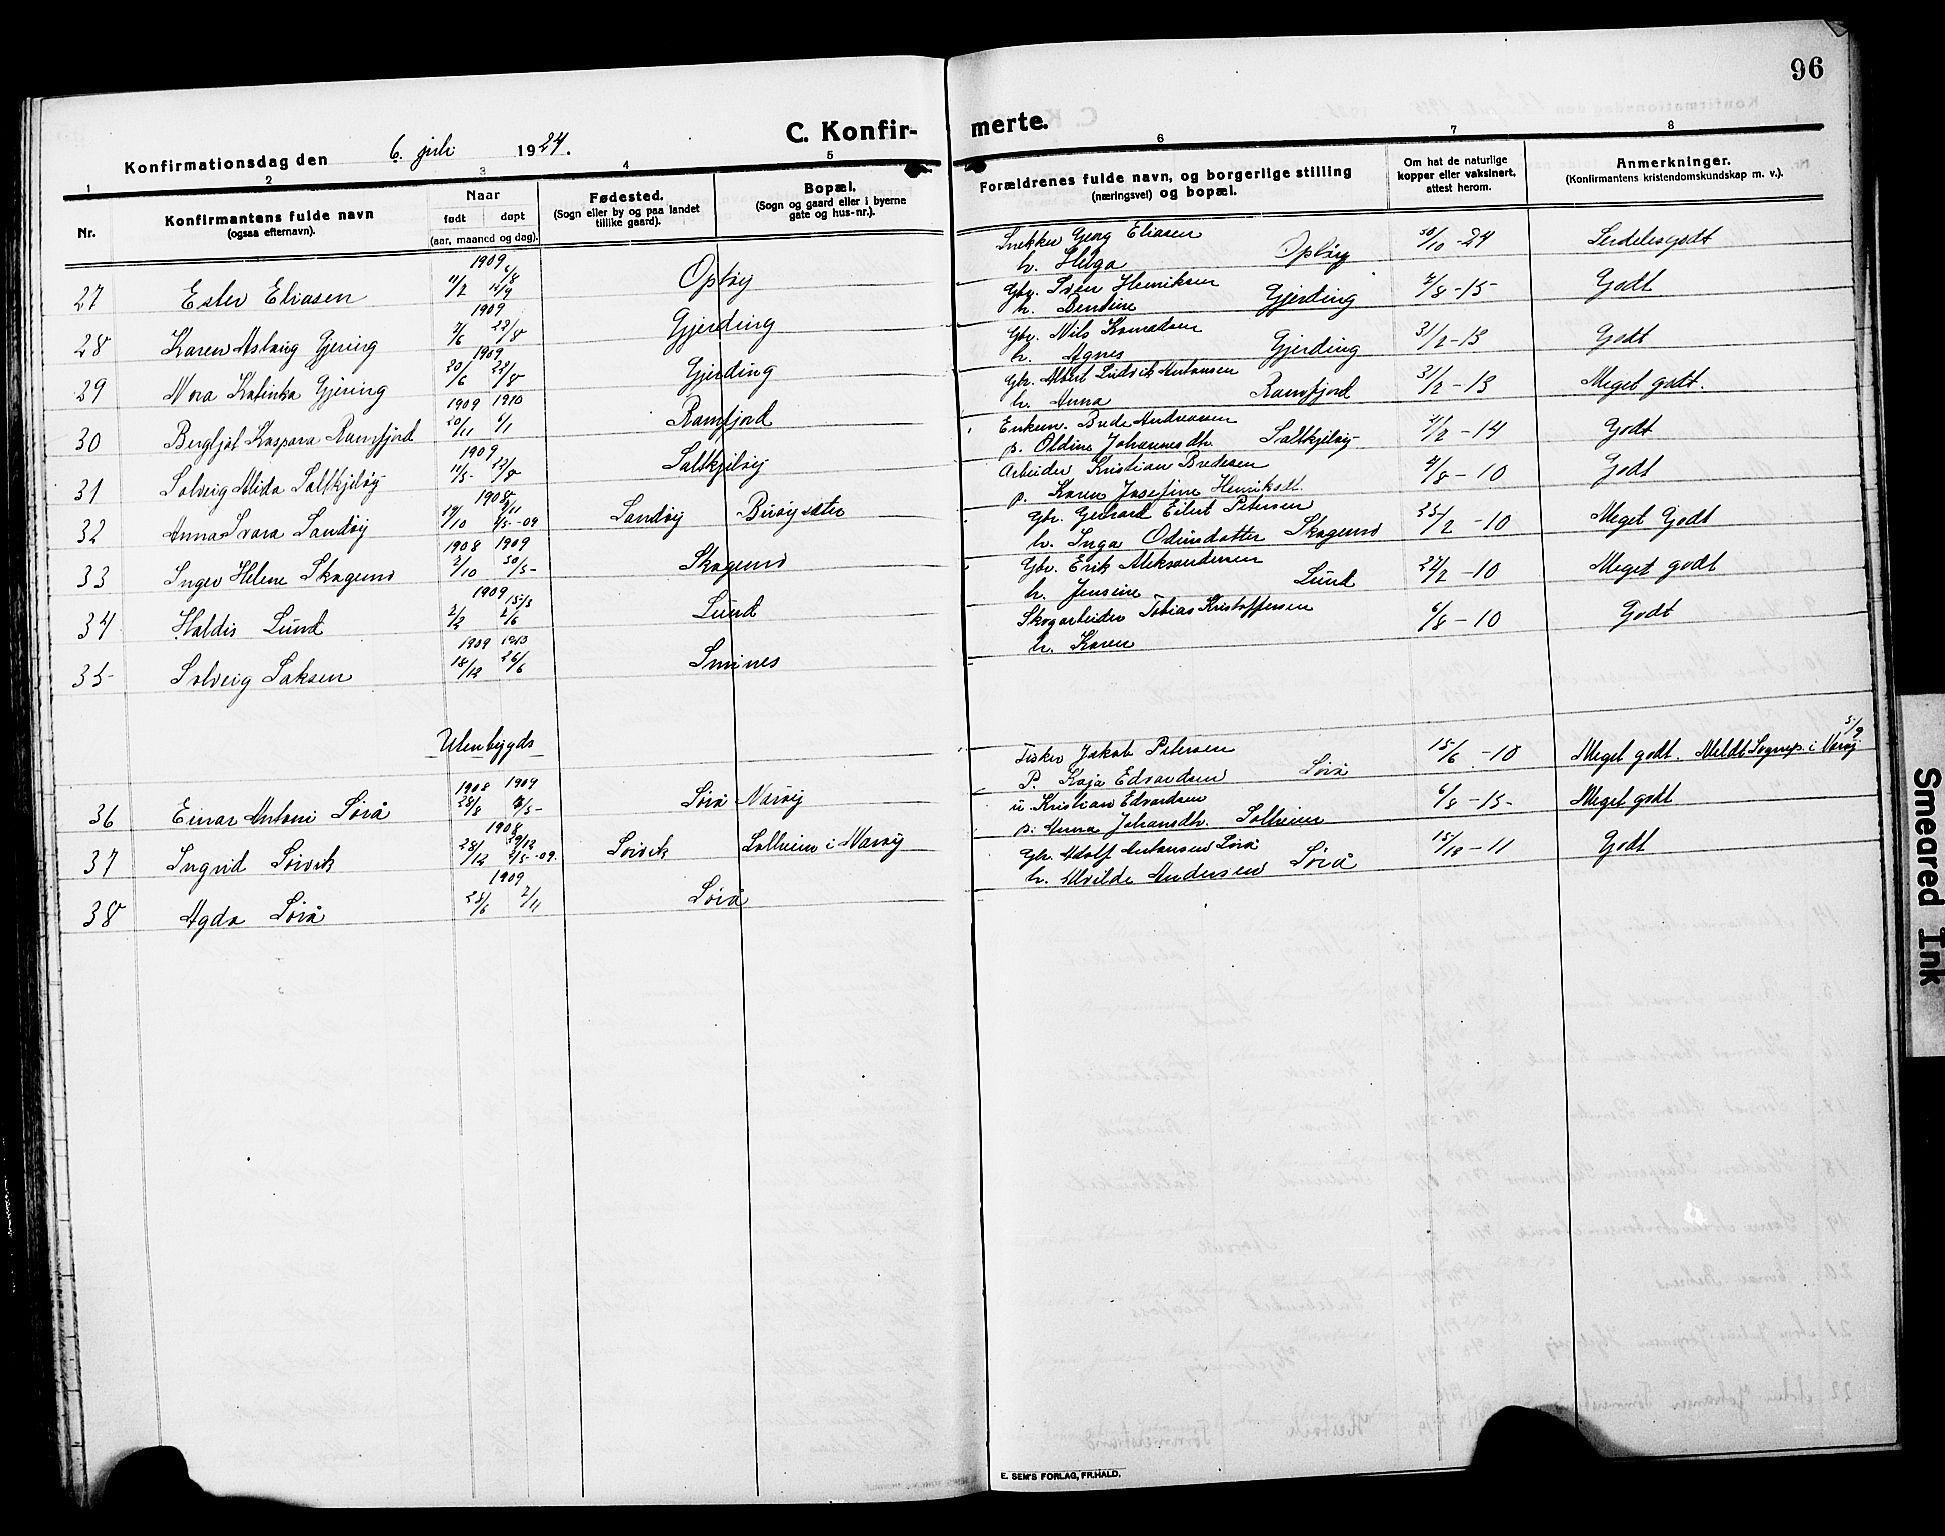 96
C. Konfirmerte.
Konfirmationsdag den 6. juli 1924.
1 2 3 4 5 6 7 8
Nr.
Konfirmantens fulde navn
(ogsaa efternavn).
Naar
født døpt
(aar, maaned og dag).
Fødested.
(Sogn eller by og paa landet
tillike gaard).
Bopæl.
(Sogn og gaard eller i byerne
gate og hus-nr.).
Forældrenes fulde navn, og borgerlige stilling
(næringsvei) og bopæl.
Om hat de naturlige
kopper eller vaksinert,
attest herom.
Anmerkninger.
(Konfirmantens kristendomskundskap m. v.).
1909
27 Ester Eliasen 11/2 6/8 12/9 Opløy
Snekker Georg Eliasen
h. Helga Opløy 30/10 - 24 Serdelesgodt
1909
28 Karen Aslaug Gjering 7/6 22/8 Gjerding
Gbr. Sven Henriksen
h. Bentine Gjerding 7/8 - 15 Godt
1909
29 Nora Katinka Gjering 20/6 22/8 Gjerding
Gbr. Nils Konradsen
h. Agnes Gjerding 31/2 - 13 Godt
1909 1910
30 Bergljot Kaspara Ramfjord 20/11 6/1 Ramfjord
Gbr. Albert Ludvik Antonsen
h. Anna Ramfjord 31/2 - 13 Meget godt.
1909
31 Solveig Alida Saltkjeløy 11/5 22/8 Saltkjeløy
Enkem. Brede Andreassen
p. Oldine Johannesdtr. Saltkjeløy 2/2 - 14 Godt
1908
32 Anna Svara Sandøy 19/10 8/11 2/5 -09 Sandøy Birøysæter
Arbeider Kristian Bredesen
p. Karen Josefine Henriksdt. 4/8 - 10 Godt
1908 1909
33 Inger Helene Skogmo 2/10 30/5 Skogmo
Gbr. Gerhard Eilert Petersen
h. Inga Odinsdatter Skogmo 23/2 - 10 Meget Godt
1909
34 Haldis Lund 2/2 15/3 2/6 Lund
Gbr. Erik Aleksandersen
h. Jensine Lund 24/2 - 10 Meget godt
1909 1910
35 Solveig Saksen 18/12 26/6 Smines
Skogarbeider Tobias Kristoffersen
h. Karen 6/8 - 10 Godt
Utenbygds
1908 1909
36 Einar Antoni Sørå 28/8 9/5 Sørå Nærøy
Fisker Jakob Petersen
P. Kaja Edvardsen Sørå 15/6 - 10 Meget godt. Meldt Sognep. i Nærøy 5/9
1908
37 Ingrid Sørvik 28/12 29/12 2/5 -09. Sørvik Solheim i Nærøy
u. Kristian Edvardsen
p. Anna Johansdtr. Solheim 6/8 - 15 Meget godt
1909
38 Agda Sørå 23/6 7/11 Sørå
Gbr. Adolf Antonsen Sørå
h. Alvilde Andersen Sørå 15/12 - 11 Godt
E. SEM'S FORLAG, FR.HALD.
Smeared Ink